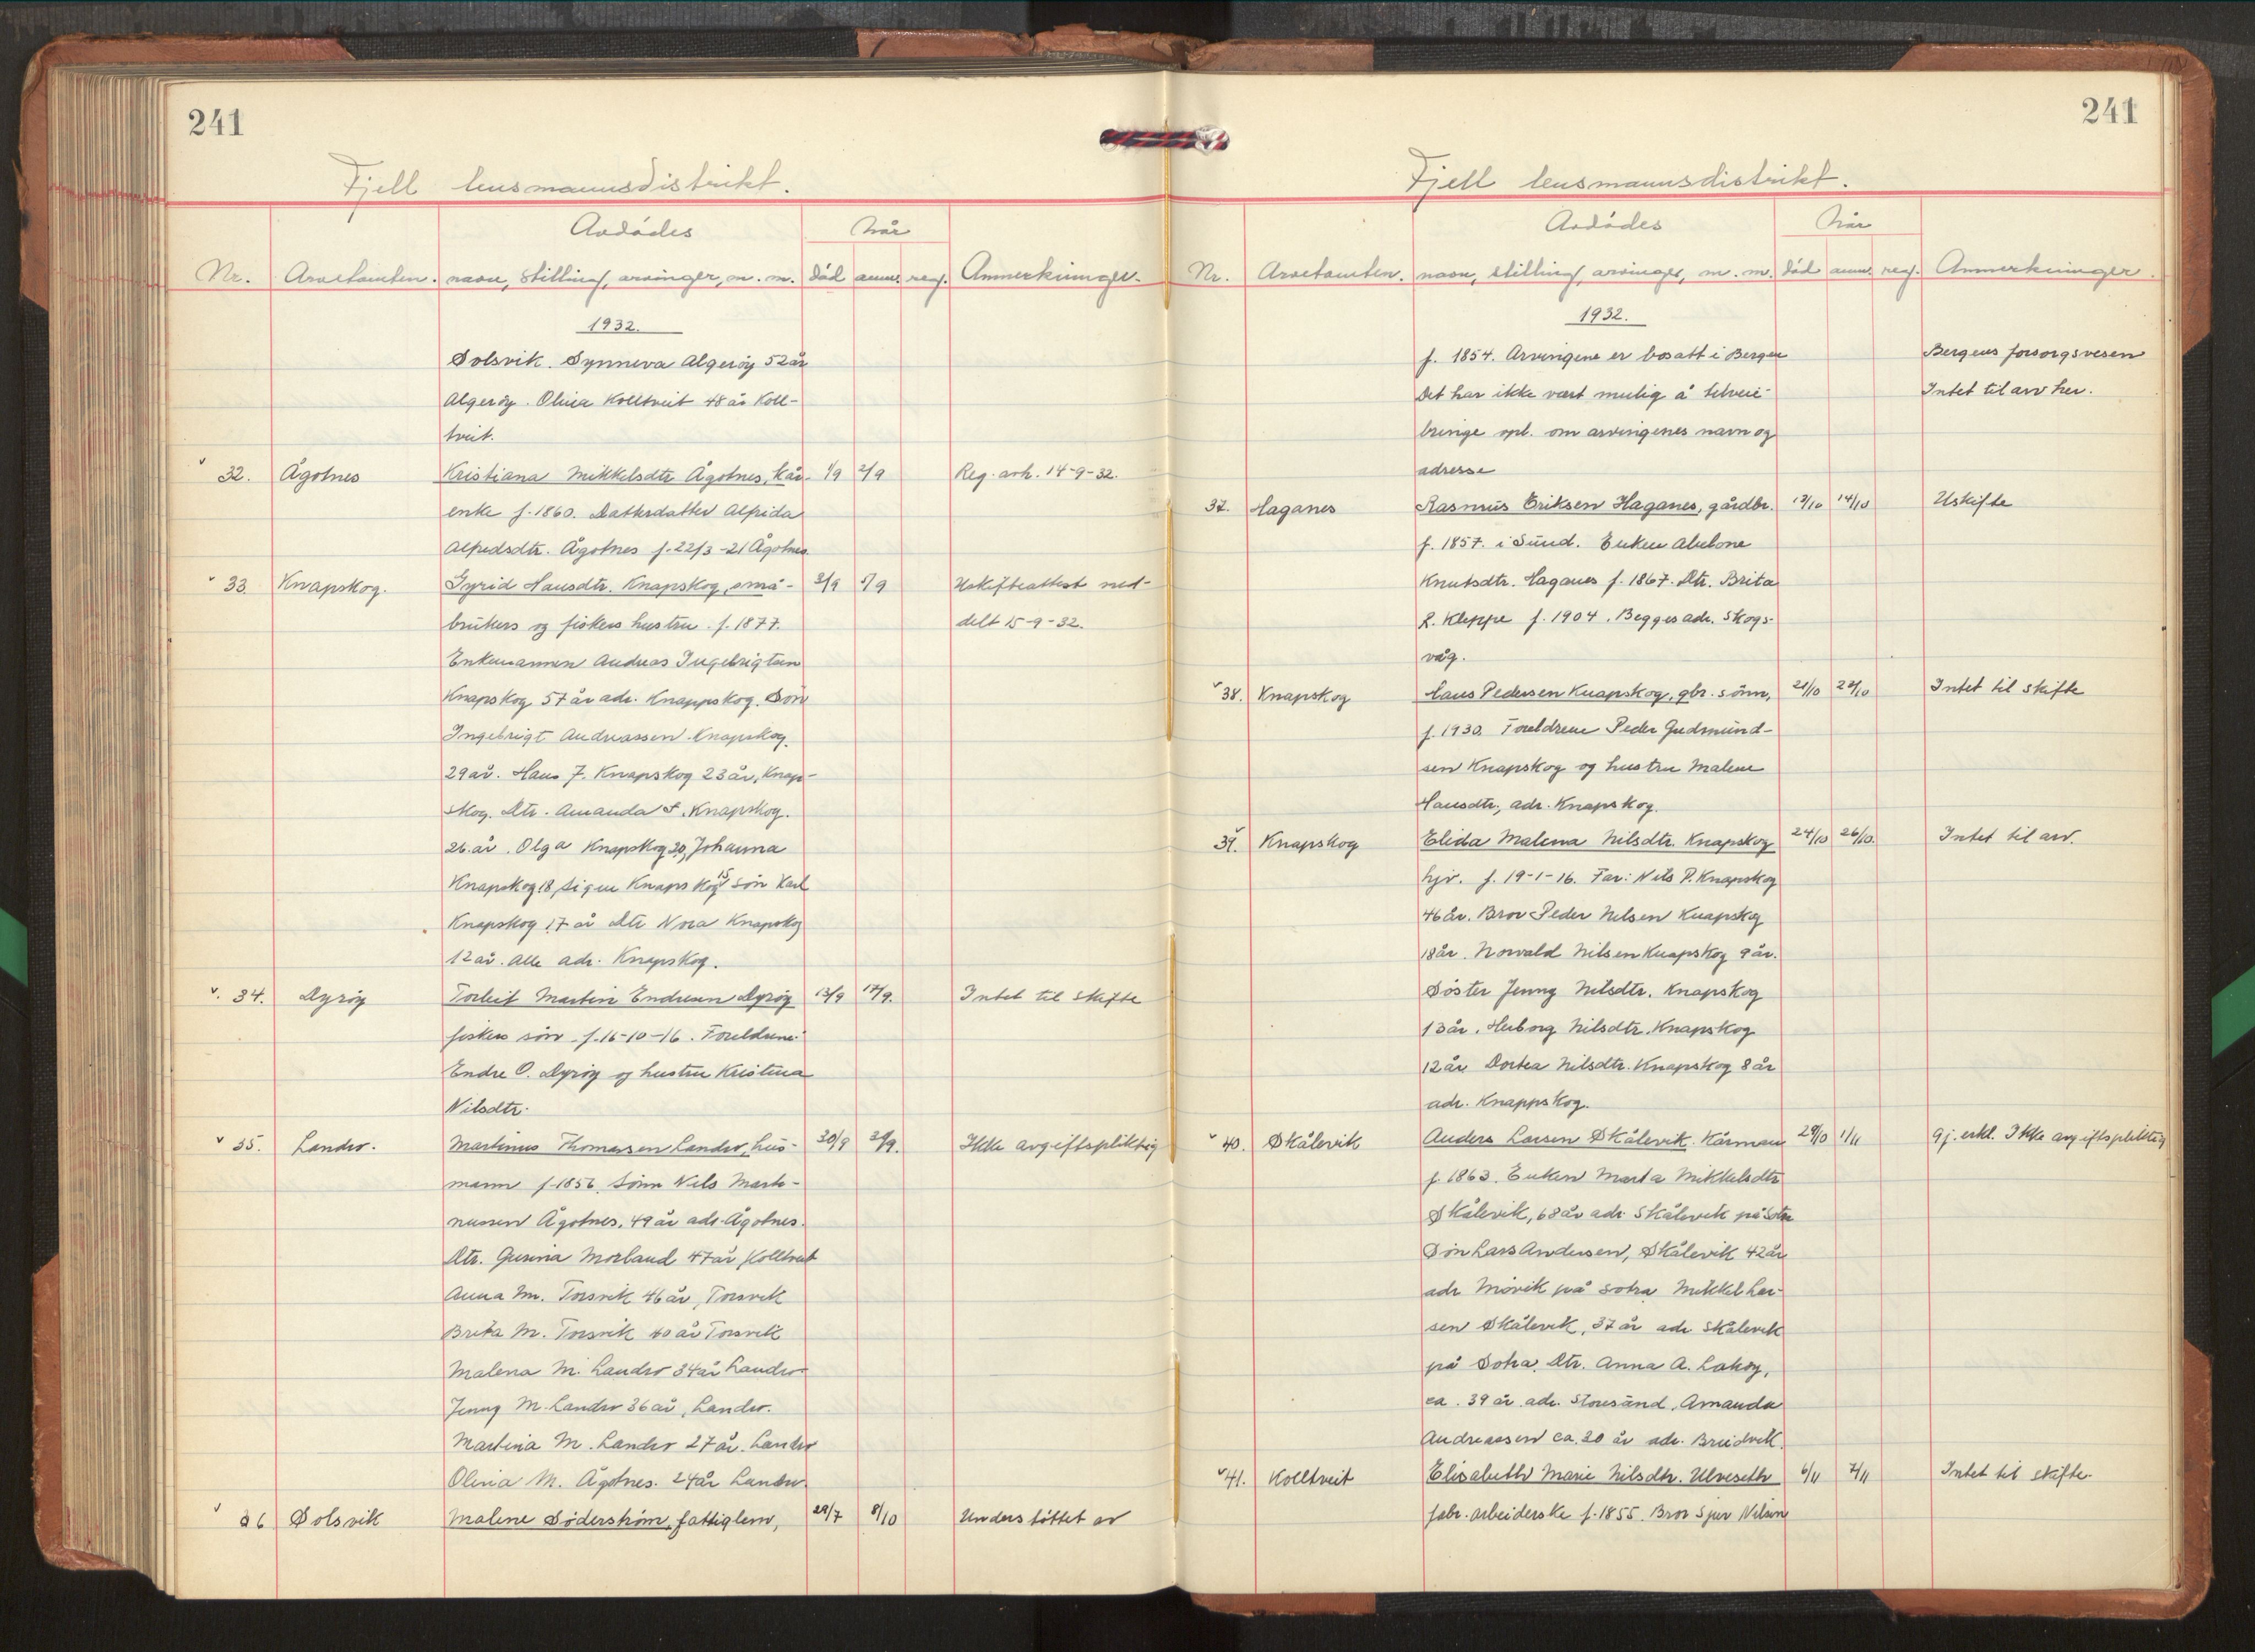 241
Fjell lensmannsdistrikt.
Avdødes
Når
Nr. Arvetomten. navn, stilling, arvinger, m. m. død anm. reg. Anmerkninger.
1932.
Solsvik. Synneva Algerøy 52 år
Algerøy. Olina Kolltveit 48 år Koll-
tveit.
32. Ågotnes Kristiana Mikkelsdtr Ågotnes, kår- 1/9 2/9 Reg. avh. 14-9-32.
enke f. 1860. Datterdatter Alfrida
Alfredsdtr. Ågotnes f. 22/3-21 Ågotnes
33. Knapskog. Gyrid Hansdtr. Knapskog, små- 3/9 5/9 Uskifteattest med-
brukers og fiskers hustru. f. 1877. delt 15-9-32.
Enkemannen Andreas Ingebrigtsen
Knapskog 57 år adr. Knappskog. Søn
Ingebrigt Andreassen Knapskog.
29 år. Hans J. Knapskog 23 år, Knap-
skog. Dtr. Amanda Knapskog.
26 år. Olga Knapskog 20, Johanna
Knapskog 18, Signe Knapskog 15 søn Karl
Knapskog 17 år dtr Nora Knapskog
12 år. Alle adr. Knapskog.
34. Dyrøy Torleif Martin Endresen Dyrøy 13/9 17/9. Intet til skifte
fiskers søn. f. 16-10-16. Foreldrene:
Endre O. Dyrøy og hustru Kristina
Nilsdtr.
35. Landro. Martinus Thomassen Landro, hus- 20/9 21/9. Ikke avgiftspliktig
mann f. 1856. Sønn Nils Marti-
nussen Ågotnes, 49 år adr. Ågotnes.
Dtr. Gurina Morland 47 år, Kolltveit
Anna M. Torsvik 46 år, Torsvik
Brita M. Torsvik 40 år Torsvik
Malena M. Landro 34 år Landro
Jenny M. Landro 36 år, Landro.
Martina M. Landro 27 år. Landro
Olina M. Ågotnes. 24 år Landro.
36 Solsvik Malene Söderström, fattiglem, 29/7 8/10 Understøttet av
241
Fjell lensmannsdistrikt.
Avdødes
Når
Nr. Arvetomten. navn, stilling, arvinger, m. m. død anm. reg. Anmerkninger.
1932.
f. 1854. Arvingene er bosatt i Bergen Bergens forsorgsvesen
Det har ikke vært mulig å tilveie- Intet til arv her.
bringe opl. om arvingenes navn og
adresse
37. Haganes Rasmus Eriksen Haganes, gårdbr. 13/10 14/10 Uskifte
f. 1857. i Sund. Enken Abelone
Knutsdtr. Haganes f. 1867. Dtr. Brita
R. Kleppe f. 1904. Begges adr. Skogs-
våg.
38. Knapskog Hans Pedersen Knapskog, gbr. sønn, 21/10 22/10 Intet til skifte
f. 1930. Foreldrene Peder Gudmund-
sen Knapskog og hustru Malene
Hansdtr., adr. Knapskog.
39. Knapskog Elida Malena Nilsdtr. Knapskog 24/10 26/10. Intet til arv.
hjv. f. 19-1-16. Far: Nils P. Knapskog
46 år. Bror Peder Nilsen Knapskog
18 år. Norvald Nilsen Knapskog 9 år.
Søster Jenny Nilsdtr. Knapskog
13 år. Herborg Nilsdtr. Knapskog
12 år Dortea Nilsdtr. Knapskog 8 år
adr. Knappskog.
40. Skålevik Anders Larsen Skålevik. Kårmann 29/10 1/11 Gj. erkl. Ikke avgiftspliktig
f. 1863. Enken Marta Mikkelsdtr
Skålevik, 68 år adr. Skålevik på Sotra
Søn Lars Andersen, Skålevik 42 år
adr Møvik på Sotra Mikkel Lar-
sen Skålevik, 37 år adr Skålevik
på Sotra. Dtr. Anna A. Lokøy,
ca. 39 år adr. Storesund, Amanda
Andreassen ca. 20 år adr. Breidvik.
41. Kolltveit Elisabeth Marie Nilsdtr. Ulveseth 6/11 7/11 Intet til skifte.
fabr. arbeiderske f. 1855. Bror Sjur Nilsen